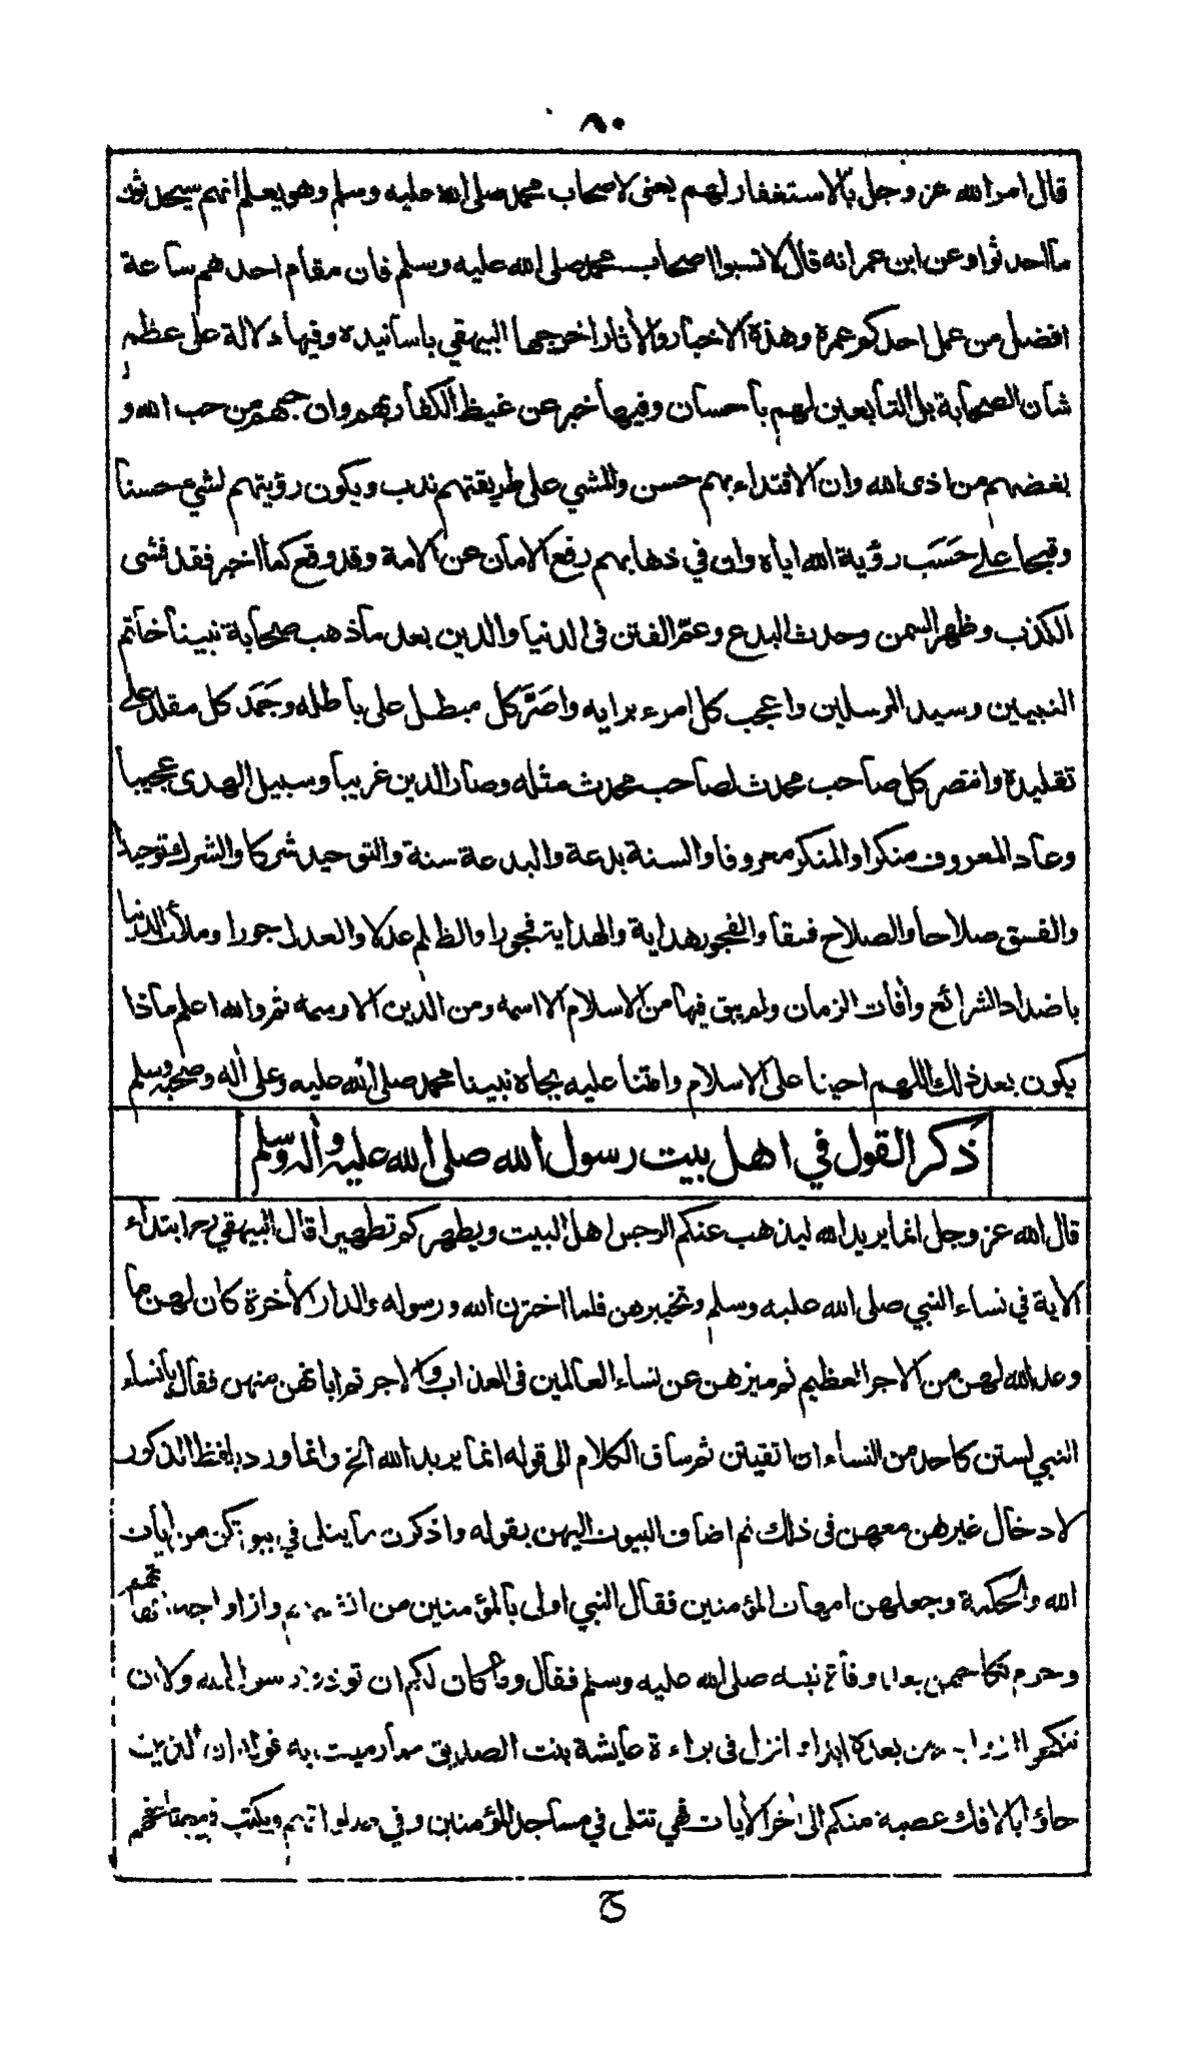 ٨٠
قال امر الله عز وجل بالاستغفار لهم يعنى لاصحاب محمد صلى الله عليه وسلم وهو يعلم انهم سيحدثون
ما احدثوا وعن ابن عمر انه قال لا تسبوا اصحاب محمد صلى الله عليه وسلم فان مقام احدهم ساعة
افضل من عمل احدكم عمره وهذه الاخبار والأثار اخرجها البيهقي باسانيده وفيها دلالة على عظم
شان الصحابة بل التابعين لهم باحسان وفيها خبر عن غيظ الكفار بهم وان حبهم من حب الله و
بغضهم من اذى الله وان الاقتداء بهم حسن والمشي على طريقتهم ندب ويكون رؤيتهم لشيء حسنا
وقبحا على حَسَب رؤية الله اياه وان في ذهابهم رفع الامان عن الامة وقد وقع كما اخبر فقد فشى
الكذب وظهر السمن وحدث البدع وعمّ الفتن فى الدنيا والدين بعد ما ذهب صحابة نبينا خاتم
النبيين وسيد المرسلين واعجب كل امرء برايه واصَرَّ كل مبطل على باطله وجَمَد كل مقلد على
تقليده وانتصر كل صاحب محدث لصاحب محدث مثله وصار الدين غريبا وسبيل الهدى عجيبا
وعاد المعروف منكرا والمنكر معروفا والسنة بدعة والبدعة سنة والتوحيد شركا والشرك توحيدا
والفسق صلاحا والصلاح فسقا والفجور هداية والهداية فجورا والظلم عدلا والعدل جورا وملأت الدنيا
باضداد الشرائع وأفات الزمان ولم يبق فيها من الاسلام الا اسمه ومن الدين الا رسمه ثم والله اعلم ماذا
يكون بعد ذلك اللهم احينا على الاسلام وامتنا عليه بجاه نبينا محمد صلى الله عليه وعلى أله وصحبه وسلم
ذكر القول في اهل بيت رسول الله صلى الله عليه وأله وسلم
قال الله عز وجل انما يريد الله ليذهب عنكم الرجس اهل البيت ويطهركم تطهيرا قال البيهقي رح ابتداء
الاية في نساء النبي صلى الله عليه وسلم وتخييرهن فلما اخترن الله ورسوله والدار الأخرة كان لهن ما
وعد الله لهن من الاجر العظيم ثم ميزهن عن نساء العالمين فى العذاب والاجر ثم ابانهن منهن فقال يا نساء
النبي لستن كاحد من النساء ان اتقيتن ثم ساق الكلام الى قوله انما يريد الله الخ وانما ورد بلفظ الذكور
لادخال غيرهن معهن فى ذلك ثم اضاف البيوت اليهن بقوله واذكرن ما يتلى في بيوتكن من ايات
الله والحكمة وجعلهن امهات المؤمنين فقال النبي اولى بالمؤمنين من انفسهم وازواجه امهاتهم
وحرم نكاحهن بعد وفاة نبيه صلى الله عليه وسلم فقال وما كان لكم ان تؤذوا رسول الله ولا ان
تنكحوا ازواجه من بعده ابدا وانزل فى براءة عايشة بنت الصديق مما رميت به قوله ان الذين
جاؤا بالافك عصبة منكم الى أخر الأيات فهي تتلى في مساجد المؤمنين وفي صلواتهم ويكتب في